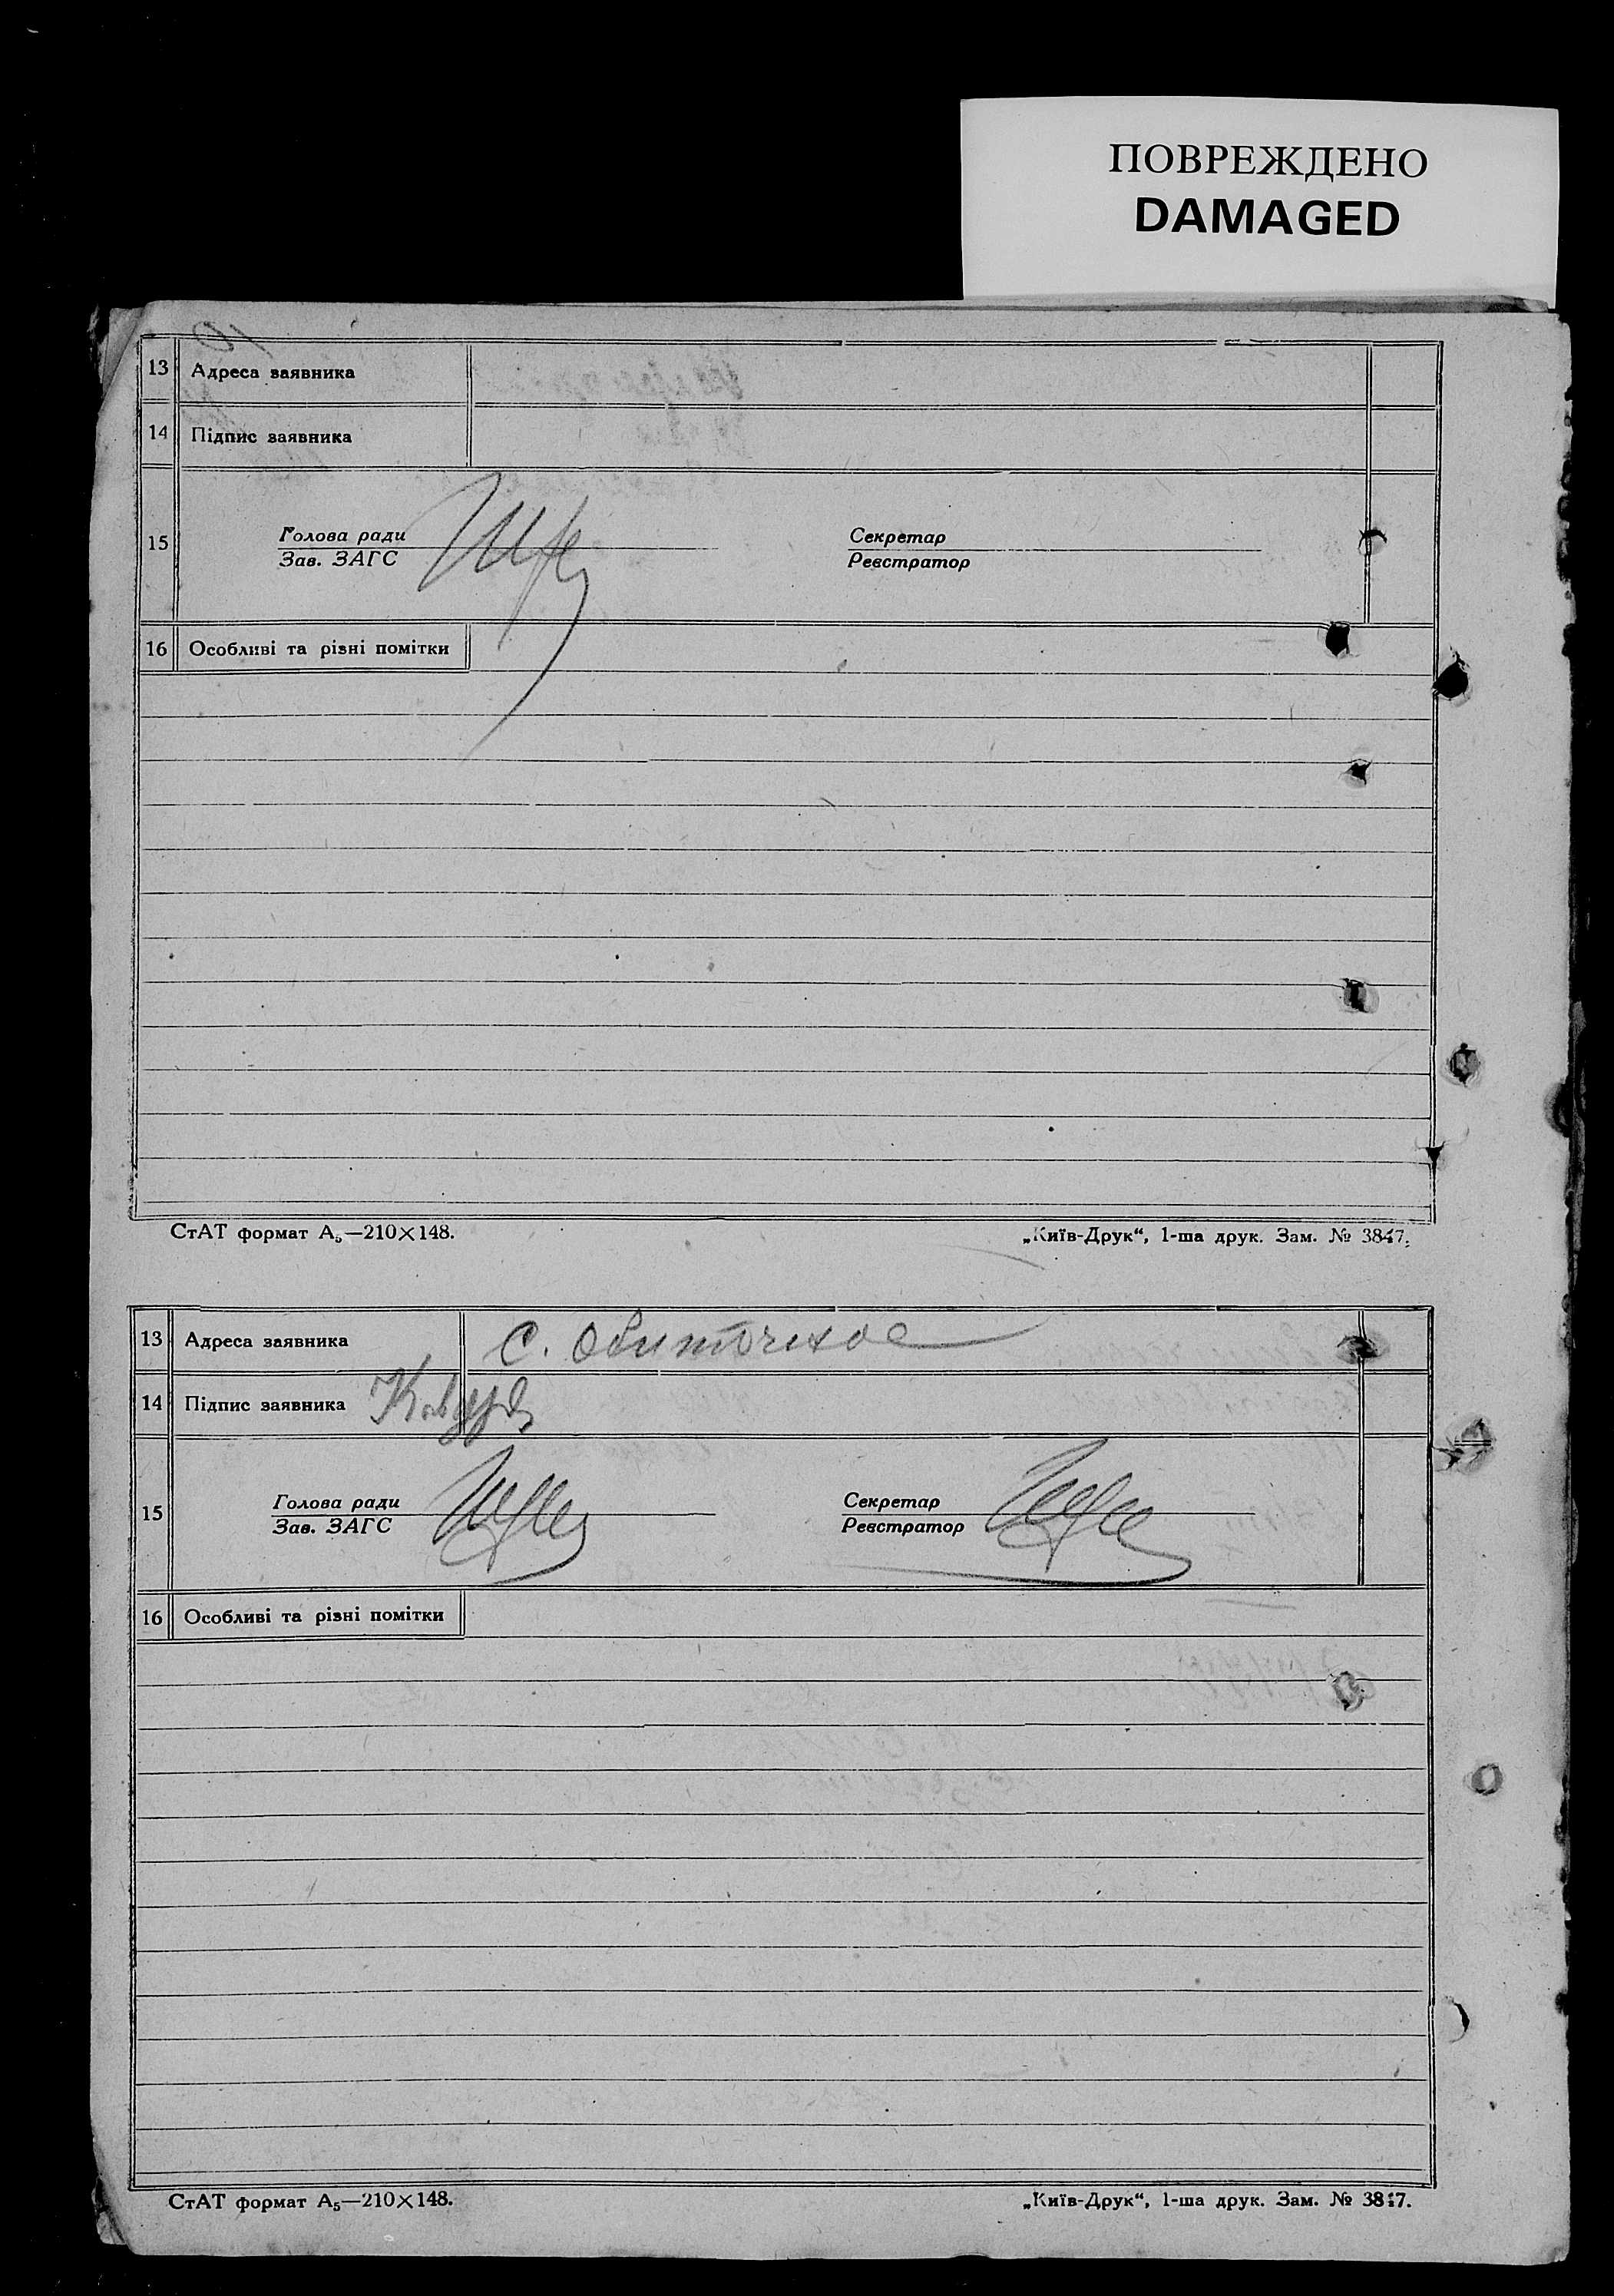 ПОВРЕЖДЕНО
DAMAGED
13 Адреса заявника
14 Підпис заявника
15 Голова ради Секретар
Зав. ЗАГС Реєстратор
16 Особливі та різні помітки
СтАТ формат А₅—210×148. „Київ-Друк“, 1-ша друк. Зам. № 3847.
13 Адреса заявника С. Обиточное
14 Підпис заявника
15 Голова ради Секретар
Зав. ЗАГС Реєстратор
16 Особливі та різні помітки
СтАТ формат А₅—210×148. „Київ-Друк“, 1-ша друк. Зам. № 3847.